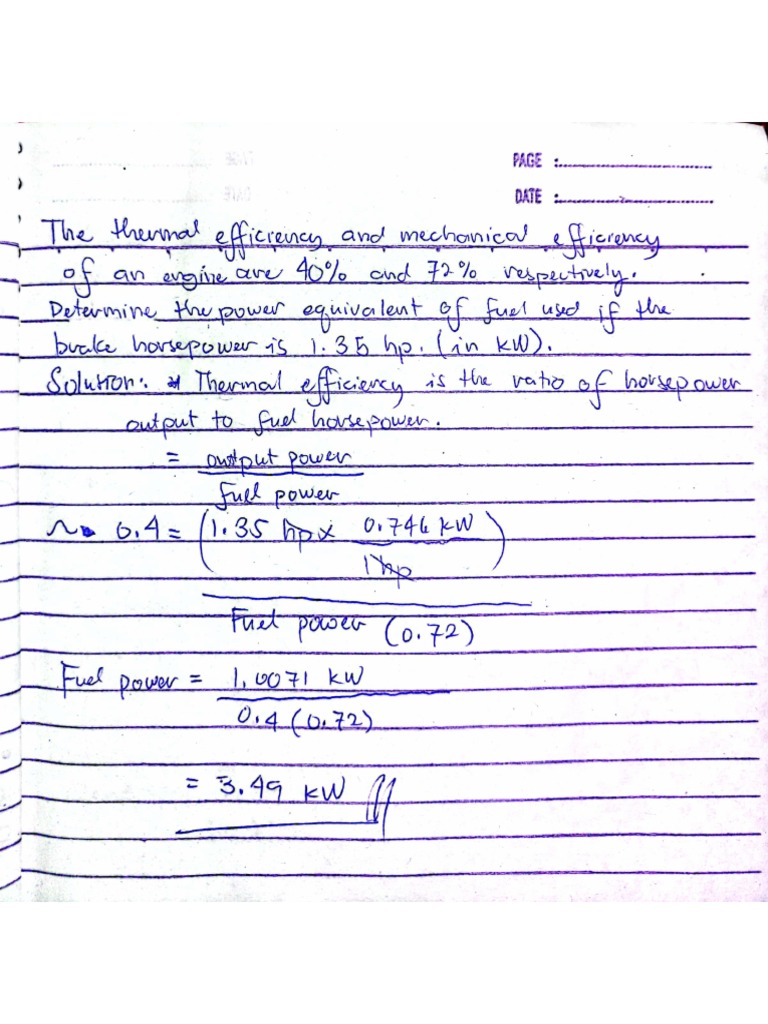 PAGE :
DATE :
The thermal efficiency and mechanical efficiency
of an engine are 40% and 72% respectively.
Determine the power equivalent of fuel used if the
brake horsepower is 1.35 hp. (in kW).
Solution: Thermal efficiency is the ratio of horsepower
output to fuel horsepower.
= output power
fuel power
0.4 = (1.35 hp x 0.746 kW
1 hp)
Fuel power (0.72)
Fuel power = 1.0071 kW
0.4 (0.72)
= 3.49 kW